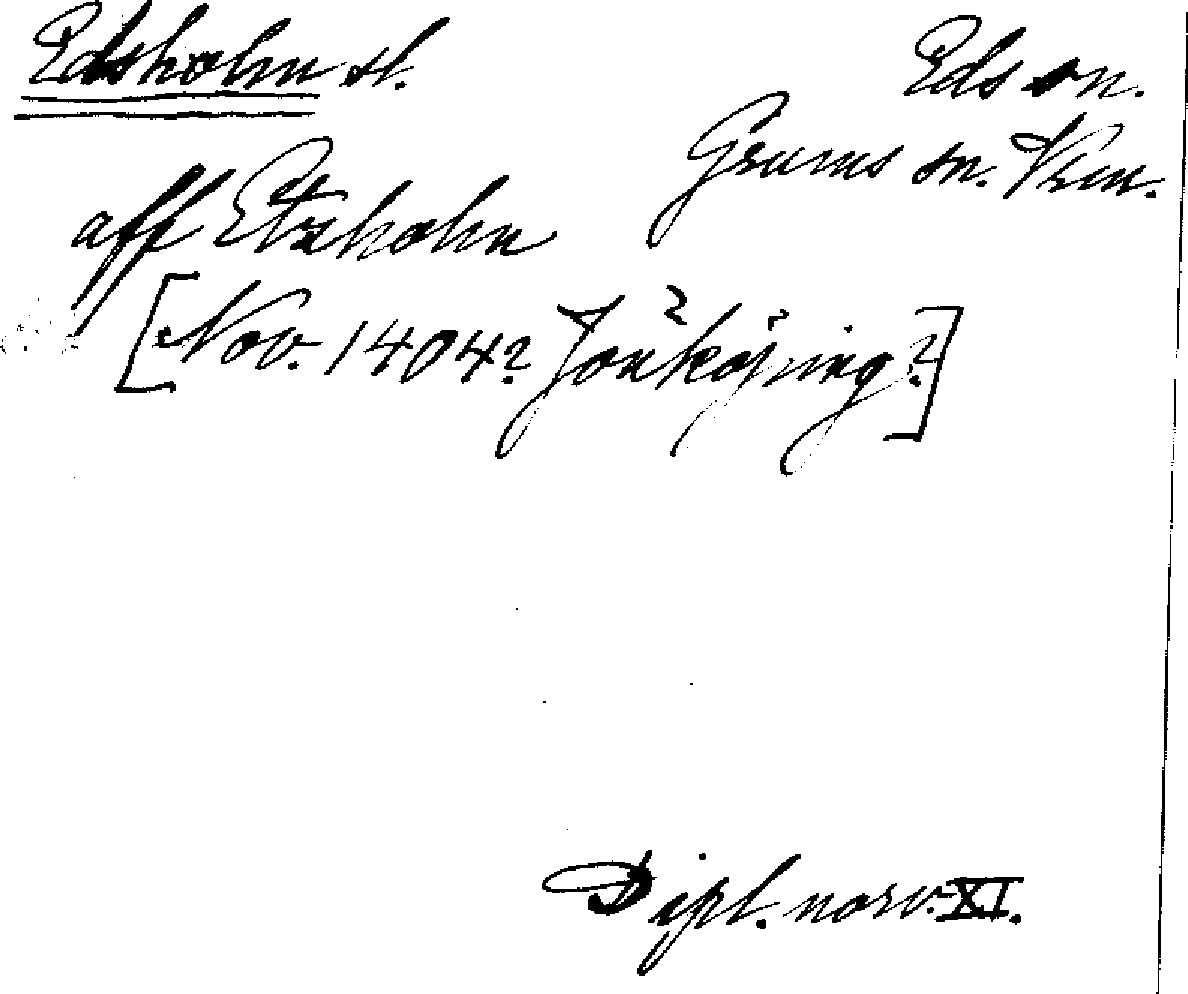 Edsholm sl.
Eds sn.
Grums sn. Vrm.
aff Etzholm
[Nov. 1404? Jonköping?]
Dipl. norv. XI.